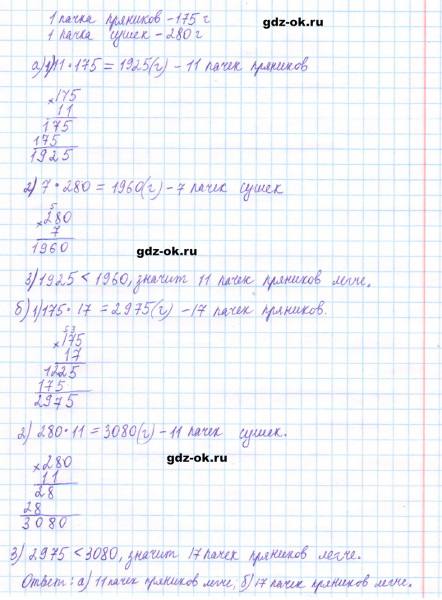 1 пачка пряников – 175 г
gdz-ok.ru
1 пачка сушек – 280 г
а) 1) 11 · 175 = 1925 (г) – 11 пачек пряников
× 175
11
175
175
1925
2) 7 · 280 = 1960 (г) – 7 пачек сушек
5
× 280
7
1960
gdz-ok.ru
3) 1925 < 1960, значит 11 пачек пряников легче.
б) 1) 175 · 17 = 2975 (г) – 17 пачек пряников.
53
× 175
17
1225
175
2975
2) 280 · 11 = 3080 (г) – 11 пачек сушек.
gdz-ok.ru
× 280
11
28
28
3080
3) 2975 < 3080, значит 17 пачек пряников легче.
Ответ: а) 11 пачек пряников легче; б) 17 пачек пряников легче.